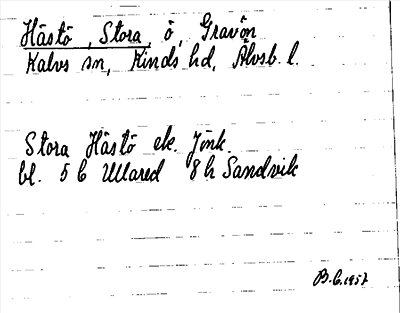 Hästö, Stora, ö, Gravön
Kalvs sn, Kinds hd, Älvsb. l.
Stora Hästö ek. Jönk.
bl. 5 6 Ullared 8 h Sandvik
B.G.1957